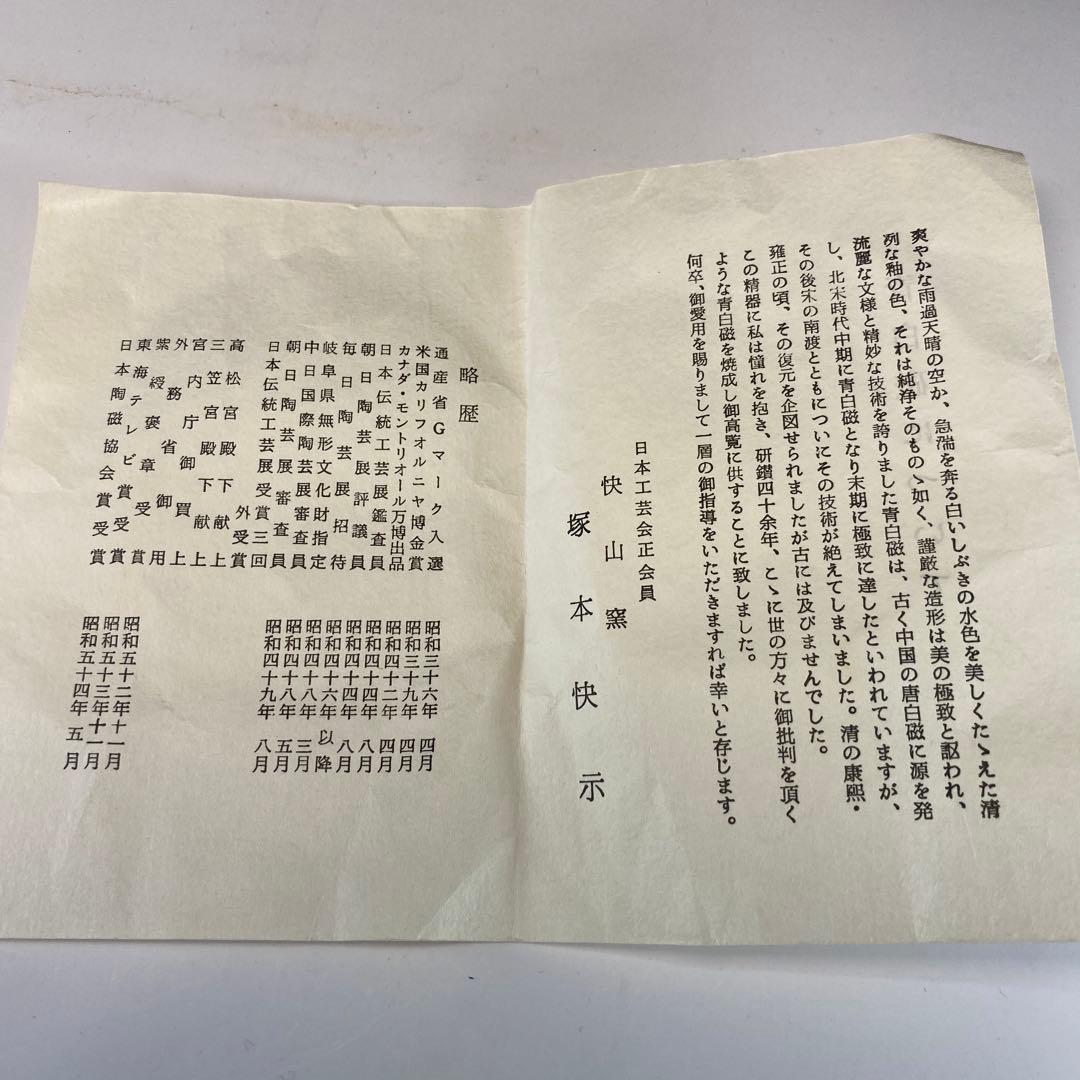 爽やかな雨過天晴の空か、急湍を奔る白いしぶきの水色を美しくたゝえた清
冽な釉の色、それは純浄そのものゝ如く、謹厳な造形は美の極致と謳われ、
流麗な文様と精妙な技術を誇りました青白磁は、古く中国の唐白磁に源を発
し、北宋時代中期に青白磁となり末期に極致に達したといわれていますが、
その後宋の南渡とともについにその技術が絶えてしまいました。清の康熙・
雍正の頃、その復元を企図せられましたが古には及びませんでした。
この精器に私は憧れを抱き、研鑽四十余年、こゝに世の方々に御批判を頂く
ような青白磁を焼成し御高覧に供することに致しました。
何卒、御愛用を賜りまして一層の御指導をいただきますれば幸いと存じます。
日本工芸会正会員
快山窯
塚本快示
略歴
通産省Gマーク入選
米国カリフォルニヤ博金賞
カナダ・モントリオール万博出品
日本伝統工芸展鑑査員
朝日陶芸展評議員
毎日陶芸展招待
岐阜県無形文化財指定
中日国際陶芸展審査員
朝日陶芸展審査員
日本伝統工芸展受賞三回
外受賞
高松宮殿下献上
三笠宮殿下献上
宮内庁御買上
外務省御用
紫綬褒章受賞
東海テレビ賞受賞
日本陶磁協会賞受賞
昭和三十六年四月
昭和三十九年四月
昭和四十二年四月
昭和四十四年八月
昭和四十四年八月
昭和四十六年以降
昭和四十八年三月
昭和四十八年五月
昭和四十九年八月
昭和五十二年十一月
昭和五十三年十一月
昭和五十四年五月